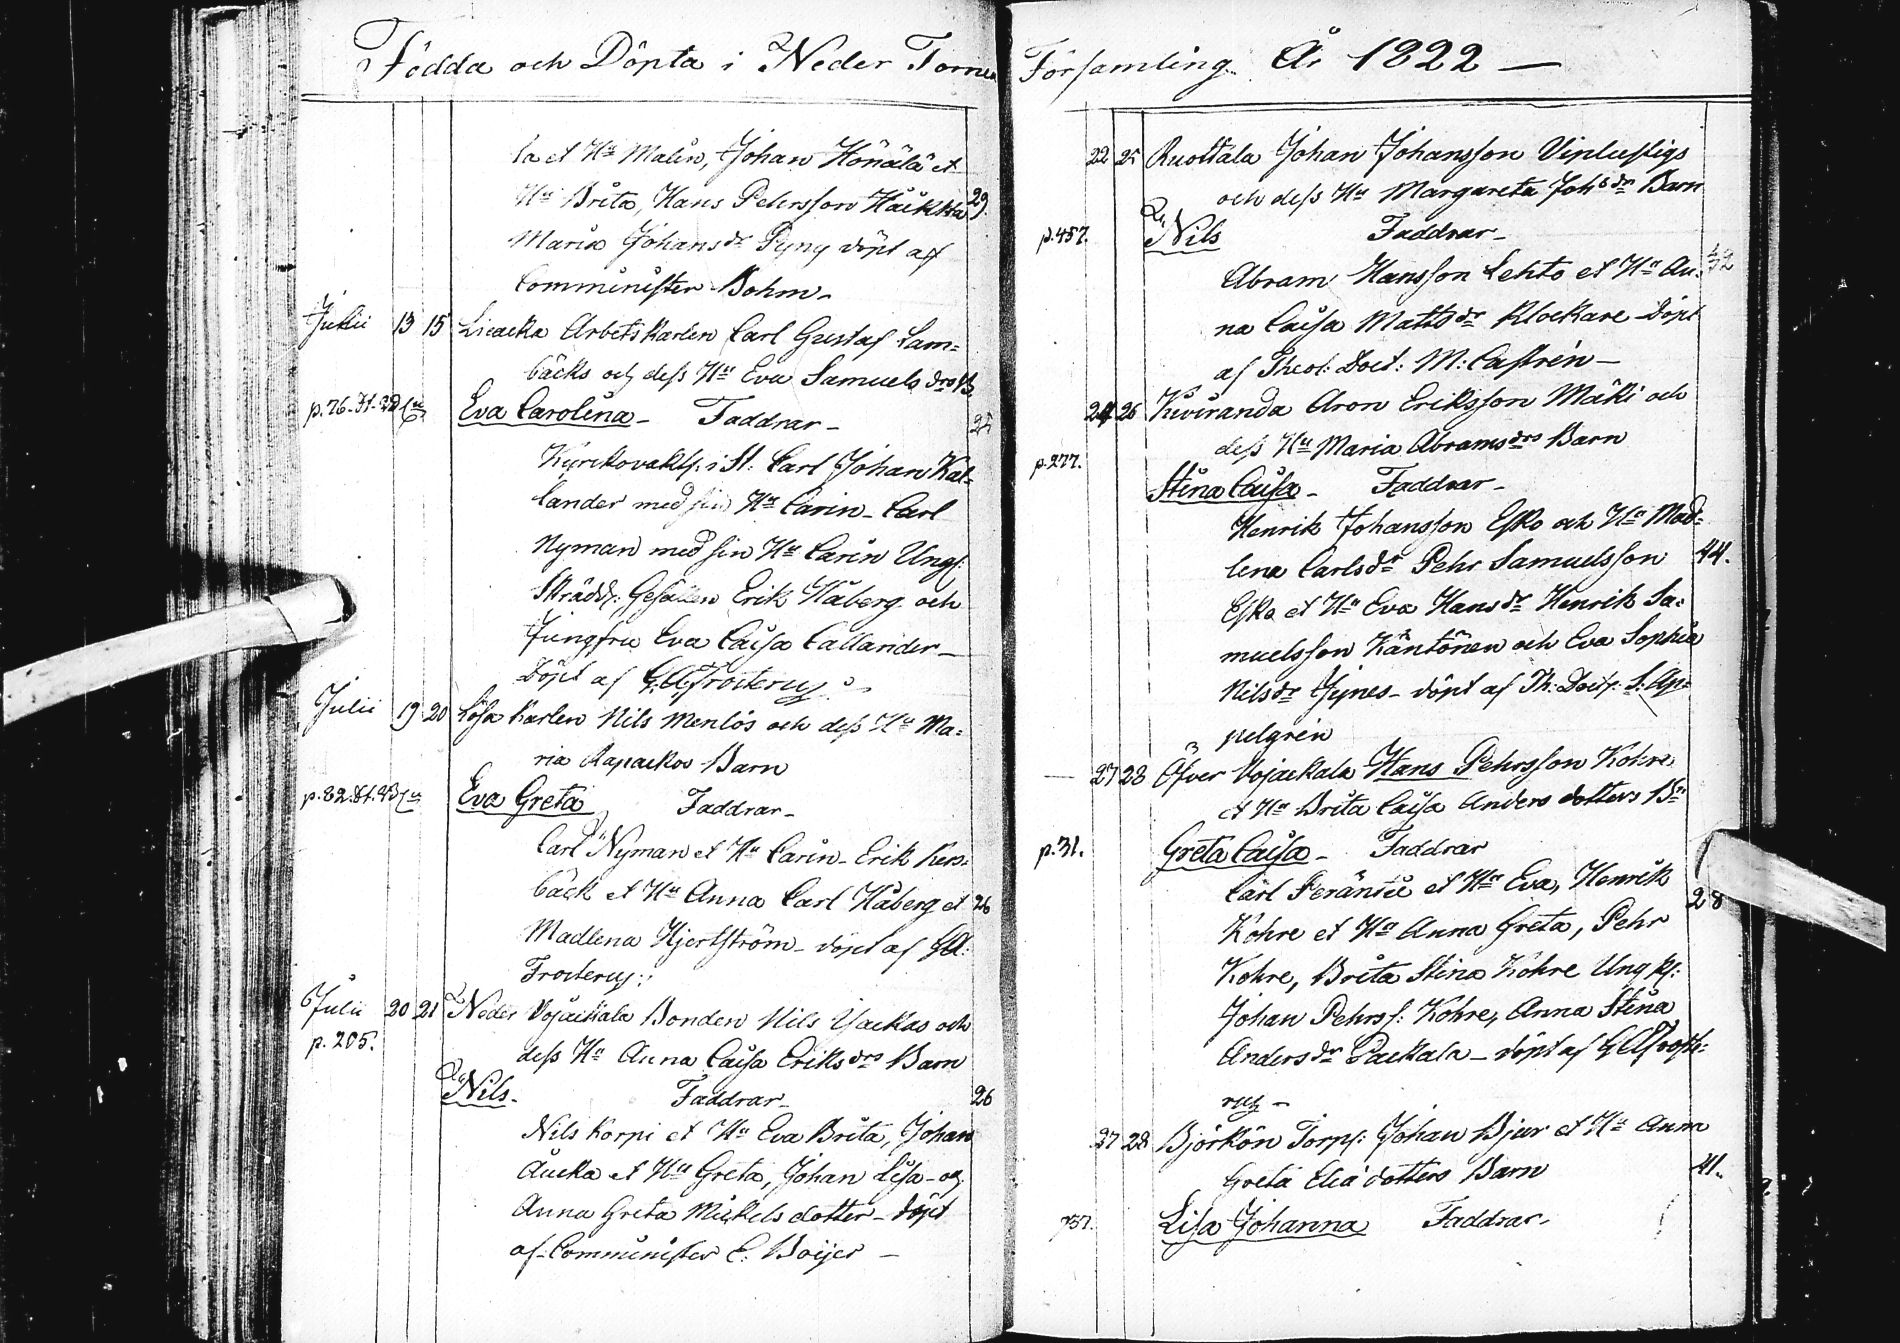 Födda och Döpta i Neder Torneå
la et Hu Malin, Johan Könälä et
Hu Brita, Hans Pehrsson 29.
Maria Johans dr Pyny döpt af
Comminister Bohm.
Julii 13 15 Liacka Arbetskarlen Carl Gustaf Lam=
bäcks och dess Hu Eva Samuels drs B.
p.76. St.
Eva Carolina. Faddrar. 25
i St: Carl Johan Kal=
lander med sin Hu Carin. Carl
Nyman med sin Hu Carin Ungf:
Skrädd: Gesällen Erik Håberg och
Jungfru Eva Caisa Callander.
Döpt af G.A. Frosterus.
Julii 19 20 Lösa karlen Nils Menlös och dess Hu Ma=
ria Rapackos Barn
p.82. St.
Eva Greta Faddrar.
Carl Nyman et Hu Carin. Erik
bäck et Hu Anna Carl Håberg et 26
Madlena Hjertström. döpt af GA:
Frosterus:
Julii 20 21 Neder Vojackala Bonden Nils Yackas och
p. 205. dess Hu Anna Caisa Eriks drs Barn
Nils. Faddrar. 26
Nils Korpi et Hu Eva Brita, Johan
Aucka et Hu Greta, Johan Lisa och
Anna Greta Mickels dotter. döpt
af Comminister C: Boijer
Församling År 1822
22 25 Ruottala Johan Johansson Vinlustigs
och dess Hu Margareta Johs dr Barn
p.457. Nils Faddrar.
Abram Hansson Lehto et Hu An= 32
na Caisa Matts dr Klockare döpt
af Theol: Doct: M: Castrén
24 26 Kiviranda Aron Eriksson Mäki och
dess Hu Maria Abrams drs Barn
p.277.
Stina Caisa. Faddrar.
Henrik Johansson Esko och Hu Mad=
lena Carls dr Pehr Samuelsson 44.
Esko et Hu Eva Hans dr Henrik Sa=
muelsson Käntönen och Eva Sophia
Nils dr Jynes. döpt af Th: Doct: S: Ap=
pelgrén
27 28 Öfver Vojackala Hans Pehrsson Kohre
et Hu Brita Caisa Anders dotters Bn
p.31. Greta Caisa. Faddrar
Carl Peräntie et Hu Eva, Henrik
28
Kohre et Hu Anna Greta, Pehr
Kohre, Brita Stina Kohre Ungk:
Johan Pehrs s: Kohre, Anna Stina
Anders dr Packala. döpt af GAFroste=
rus
27 28 Björkön Torp: Johan Bjur et Hu Anna
Greta Elia dotters Barn 41.
Lisa Johanna Faddrar.